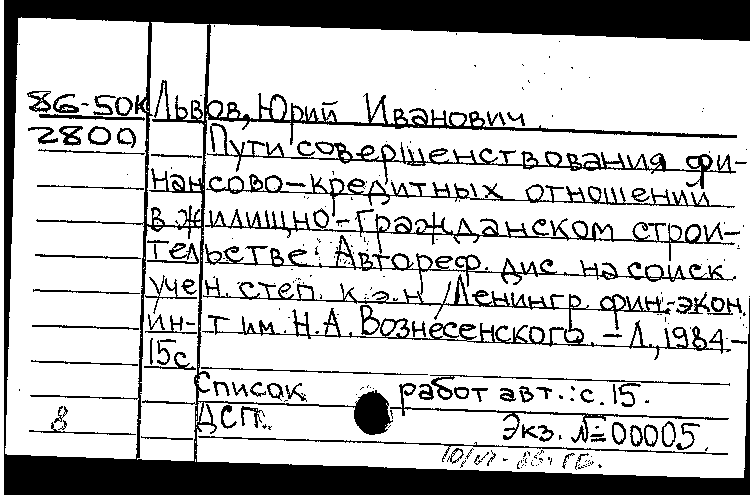 86-50к Львов, Юрий Иванович
2800 Пути совершенствования фи-
нансово-кредитных отношений
в жилищно-гражданском строи-
тельстве: Автореф. дис. на соиск.
учен. степ. к.э.н / Ленингр. фин.-экон.
ин-т им. Н.А. Вознесенского. - Л., 1984.-
15с.
Список работ авт.: с. 15.
8 ДСП. Экз. №=00005.